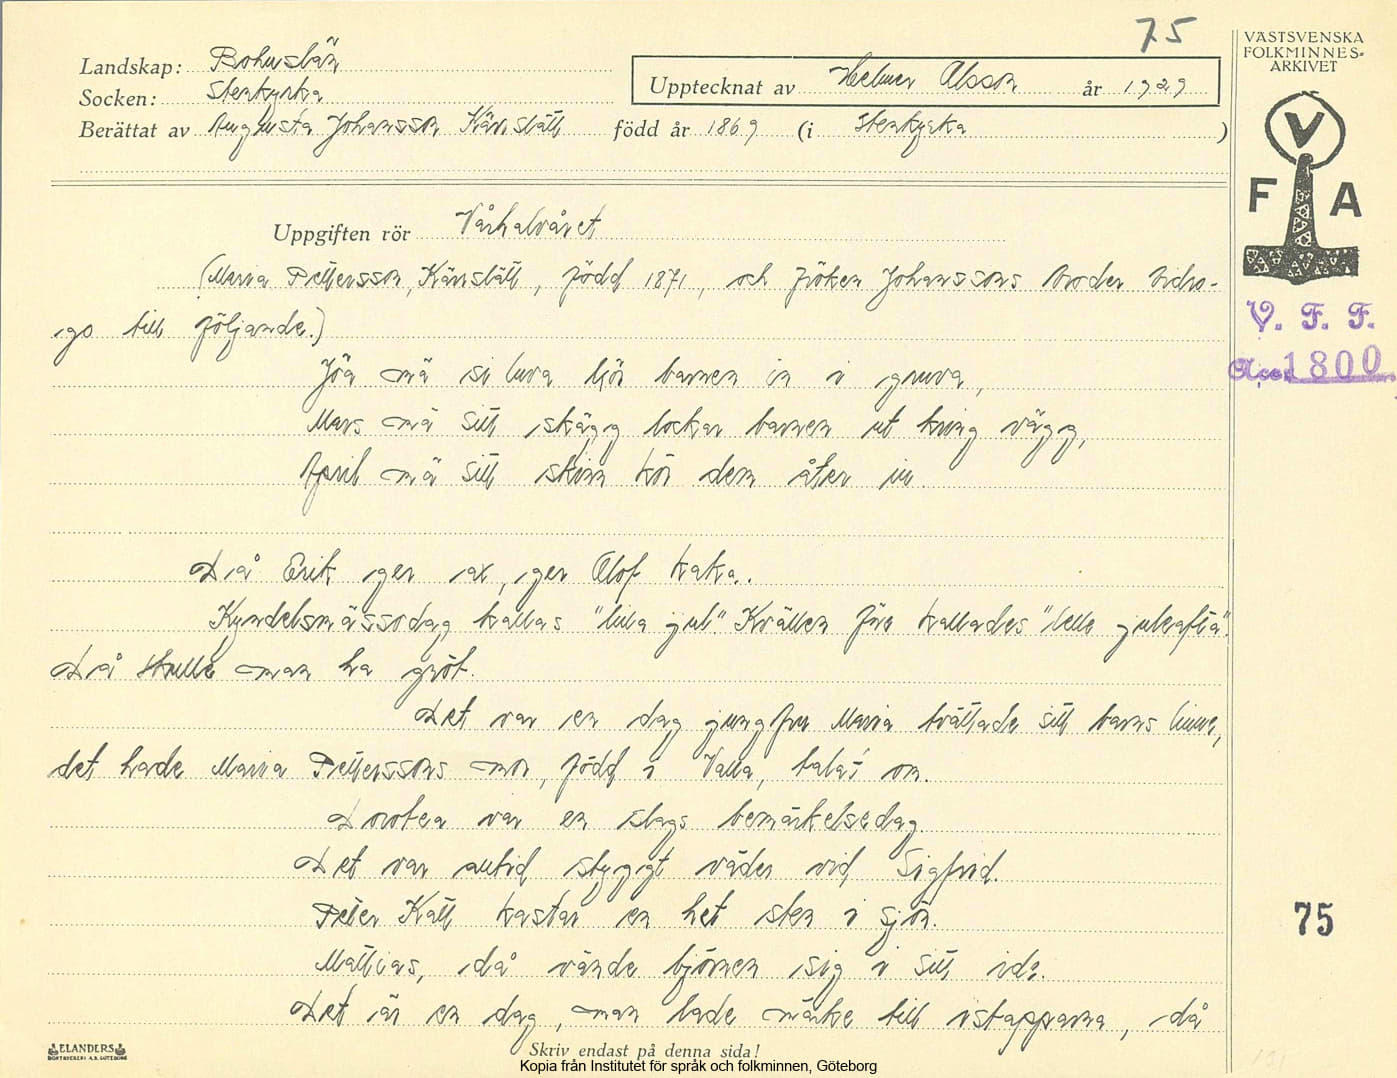 75
Landskap: Bohuslän
Socken: Stenkyrka
Berättat av Augusta Johansson Kärrslätt född år 1869 (i Stenkyrka)
Upptecknat av Helmer Olsson år 1929
VÄSTSVENSKA
FOLKMINNES-
ARKIVET
V
F A
V. F. F.
Acc. 1800
Uppgiften rör Vårhalvåret
(Maria Pettersson, Kärrslätt, född 1871, och fröken Johanssons broder bidro-
go till följande.)
Jöa mä si luva kjör barnen in i gruva,
Mars mä sitt skägg lockar barnen ut kring vägg,
April mä sitt skinn kör dem åter in.
Då Erik ger ax, ger Olof kaka.
Kyndelsmässodag kallas "lilla jul". Kvällen före kallades "lelle juleafta".
Då skulle man ha gröt.
Det var en dag jungfru Maria tvättade sitt barns linne,
det hade Maria Petterssons mor, född i Valla, tala't om.
Dorotea var en slags bemärkelsedag.
Det var alltid styggt väder vid Sigfrid.
Peter Katt kastar en het sten i sjön.
Mattias, då vände björnen sig i sitt ide.
Det är en dag, man lade märke till istapparna, då
75
ELANDERS
BOKTRYCKERI A.B. GÖTEBORG
Skriv endast på denna sida!
Kopia från Institutet för språk och folkminnen, Göteborg